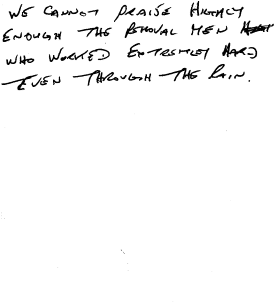 WE CANNOT PRAISE HIGHLY
ENOUGH THE REMOVAL MEN
WHO WORKED EXTREMELY HARD
EVEN THROUGH THE RAIN.